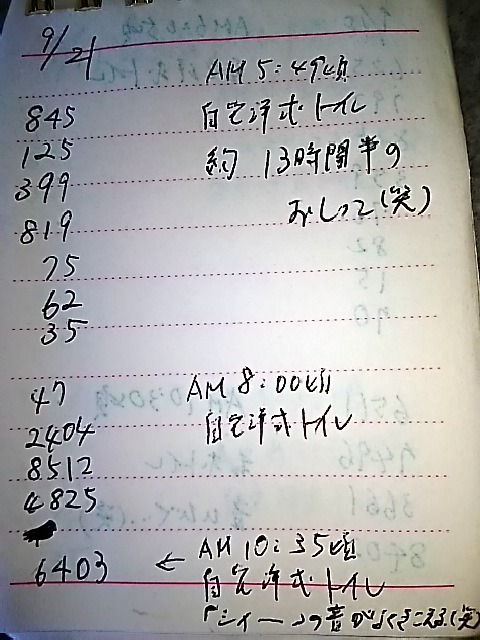 9/21
AM 5:49頃
845
自宅洋式トイレ
125
約 13時間半の
399
819
おしっこ(笑)
75
62
35
47
AM 8:00頃
2404
自宅洋式トイレ
8512
4825
6403
← AM 10:35頃
自宅洋式トイレ
「シィーーっの音がよくきこえる(笑)